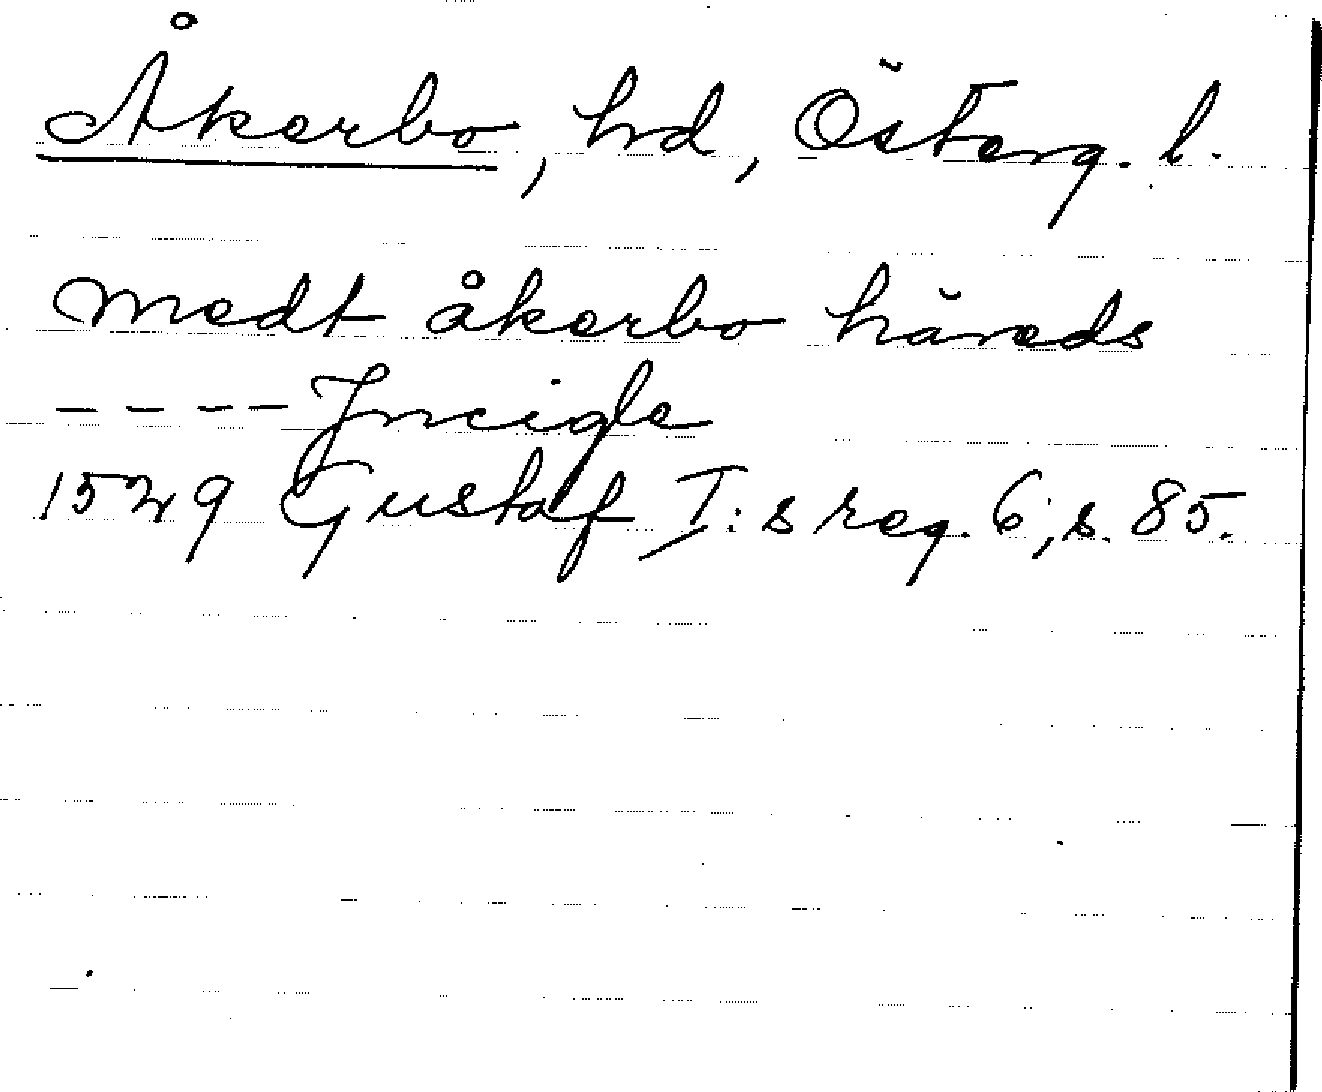 Åkerbo, hd, Österg. l.
medt åkerbo häreds
---- Jncigle
1529 Gustaf I:s reg. 6, s. 85.